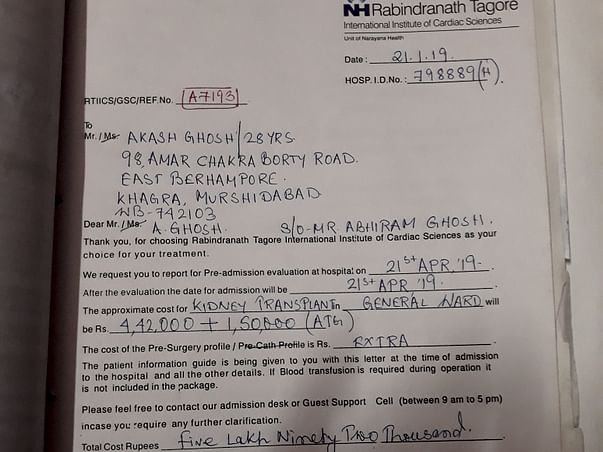 NH Rabindranath Tagore
International Institute of Cardiac Sciences
Unit of Narayana Health
Date : 21.1.19.
HOSP. I.D.No. : 798889(H).
RTIICS/GSC/REF.No. A7193
To
Mr. / Ms. AKASH GHOSH / 28 YRS.
98, AMAR CHAKRA BORTY ROAD.
EAST BERHAMPORE.
KHAGRA, MURSHIDABAD
WB-742103
Dear Mr. / Ms. A. GHOSH. S/O-MR. ABHIRAM GHOSH.
Thank you, for choosing Rabindranath Tagore International Institute of Cardiac Sciences as your
choice for your treatment.
We request you to report for Pre-admission evaluation at hospital on 21st APR '19.
After the evaluation the date for admission will be 21st APR '19.
The approximate cost for KIDNEY TRANSPLANT in GENERAL WARD will
be Rs. 4,42,000 + 1,50,000 (ATG)
The cost of the Pre-Surgery profile / Pre-Cath Profile is Rs. EXTRA
The patient information guide is being given to you with this letter at the time of admission
to the hospital and all the other details. If Blood transfusion is required during operation it
is not included in the package.
Please feel free to contact our admission desk or Guest Support Cell (between 9 am to 5 pm)
incase you require any further clarification.
Total Cost Rupees Five Lakh Ninety Two Thousand.